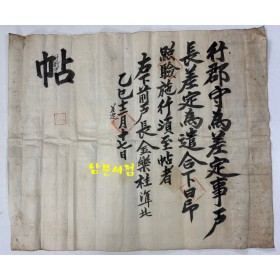 行郡守爲差定事戶
長差定爲遣合下仰
照驗施行須至帖者
右下前戶長金樂桂準此
乙巳十二月十七日
差定
帖
남문서점